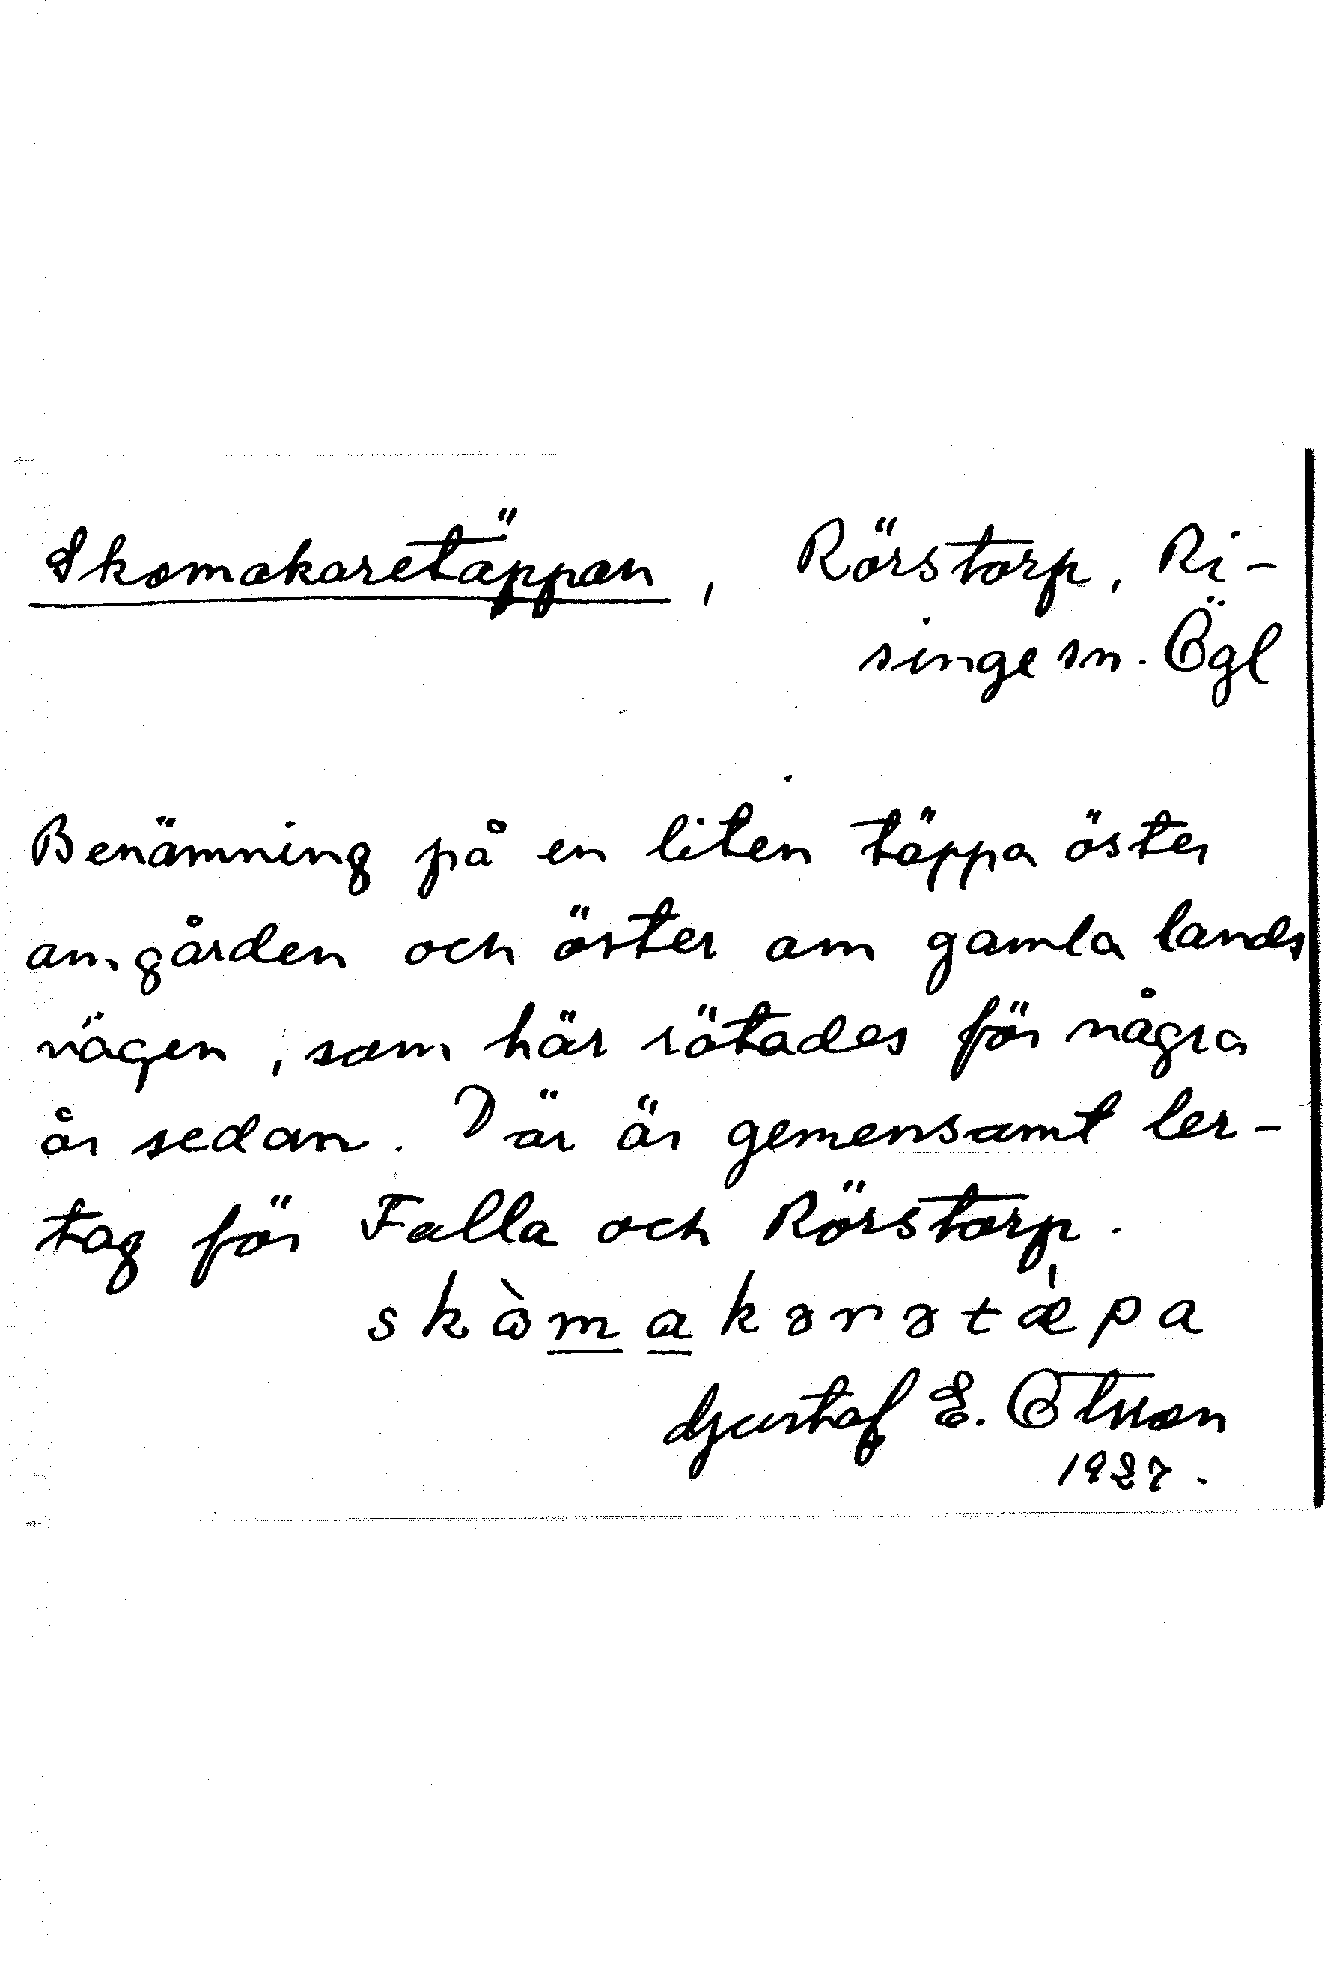 Skomakaretäppan, Rörstorp, Ri-
singe sn. Ögl
Benämning på en liten täppa öster
om gården och öster om gamla lands
vägen, som här rötades för några
år sedan. Där är gemensamt ler-
tag för Falla och Rörstorp.
skòmakərətǽpa
Gustaf E. Otsson
1927.